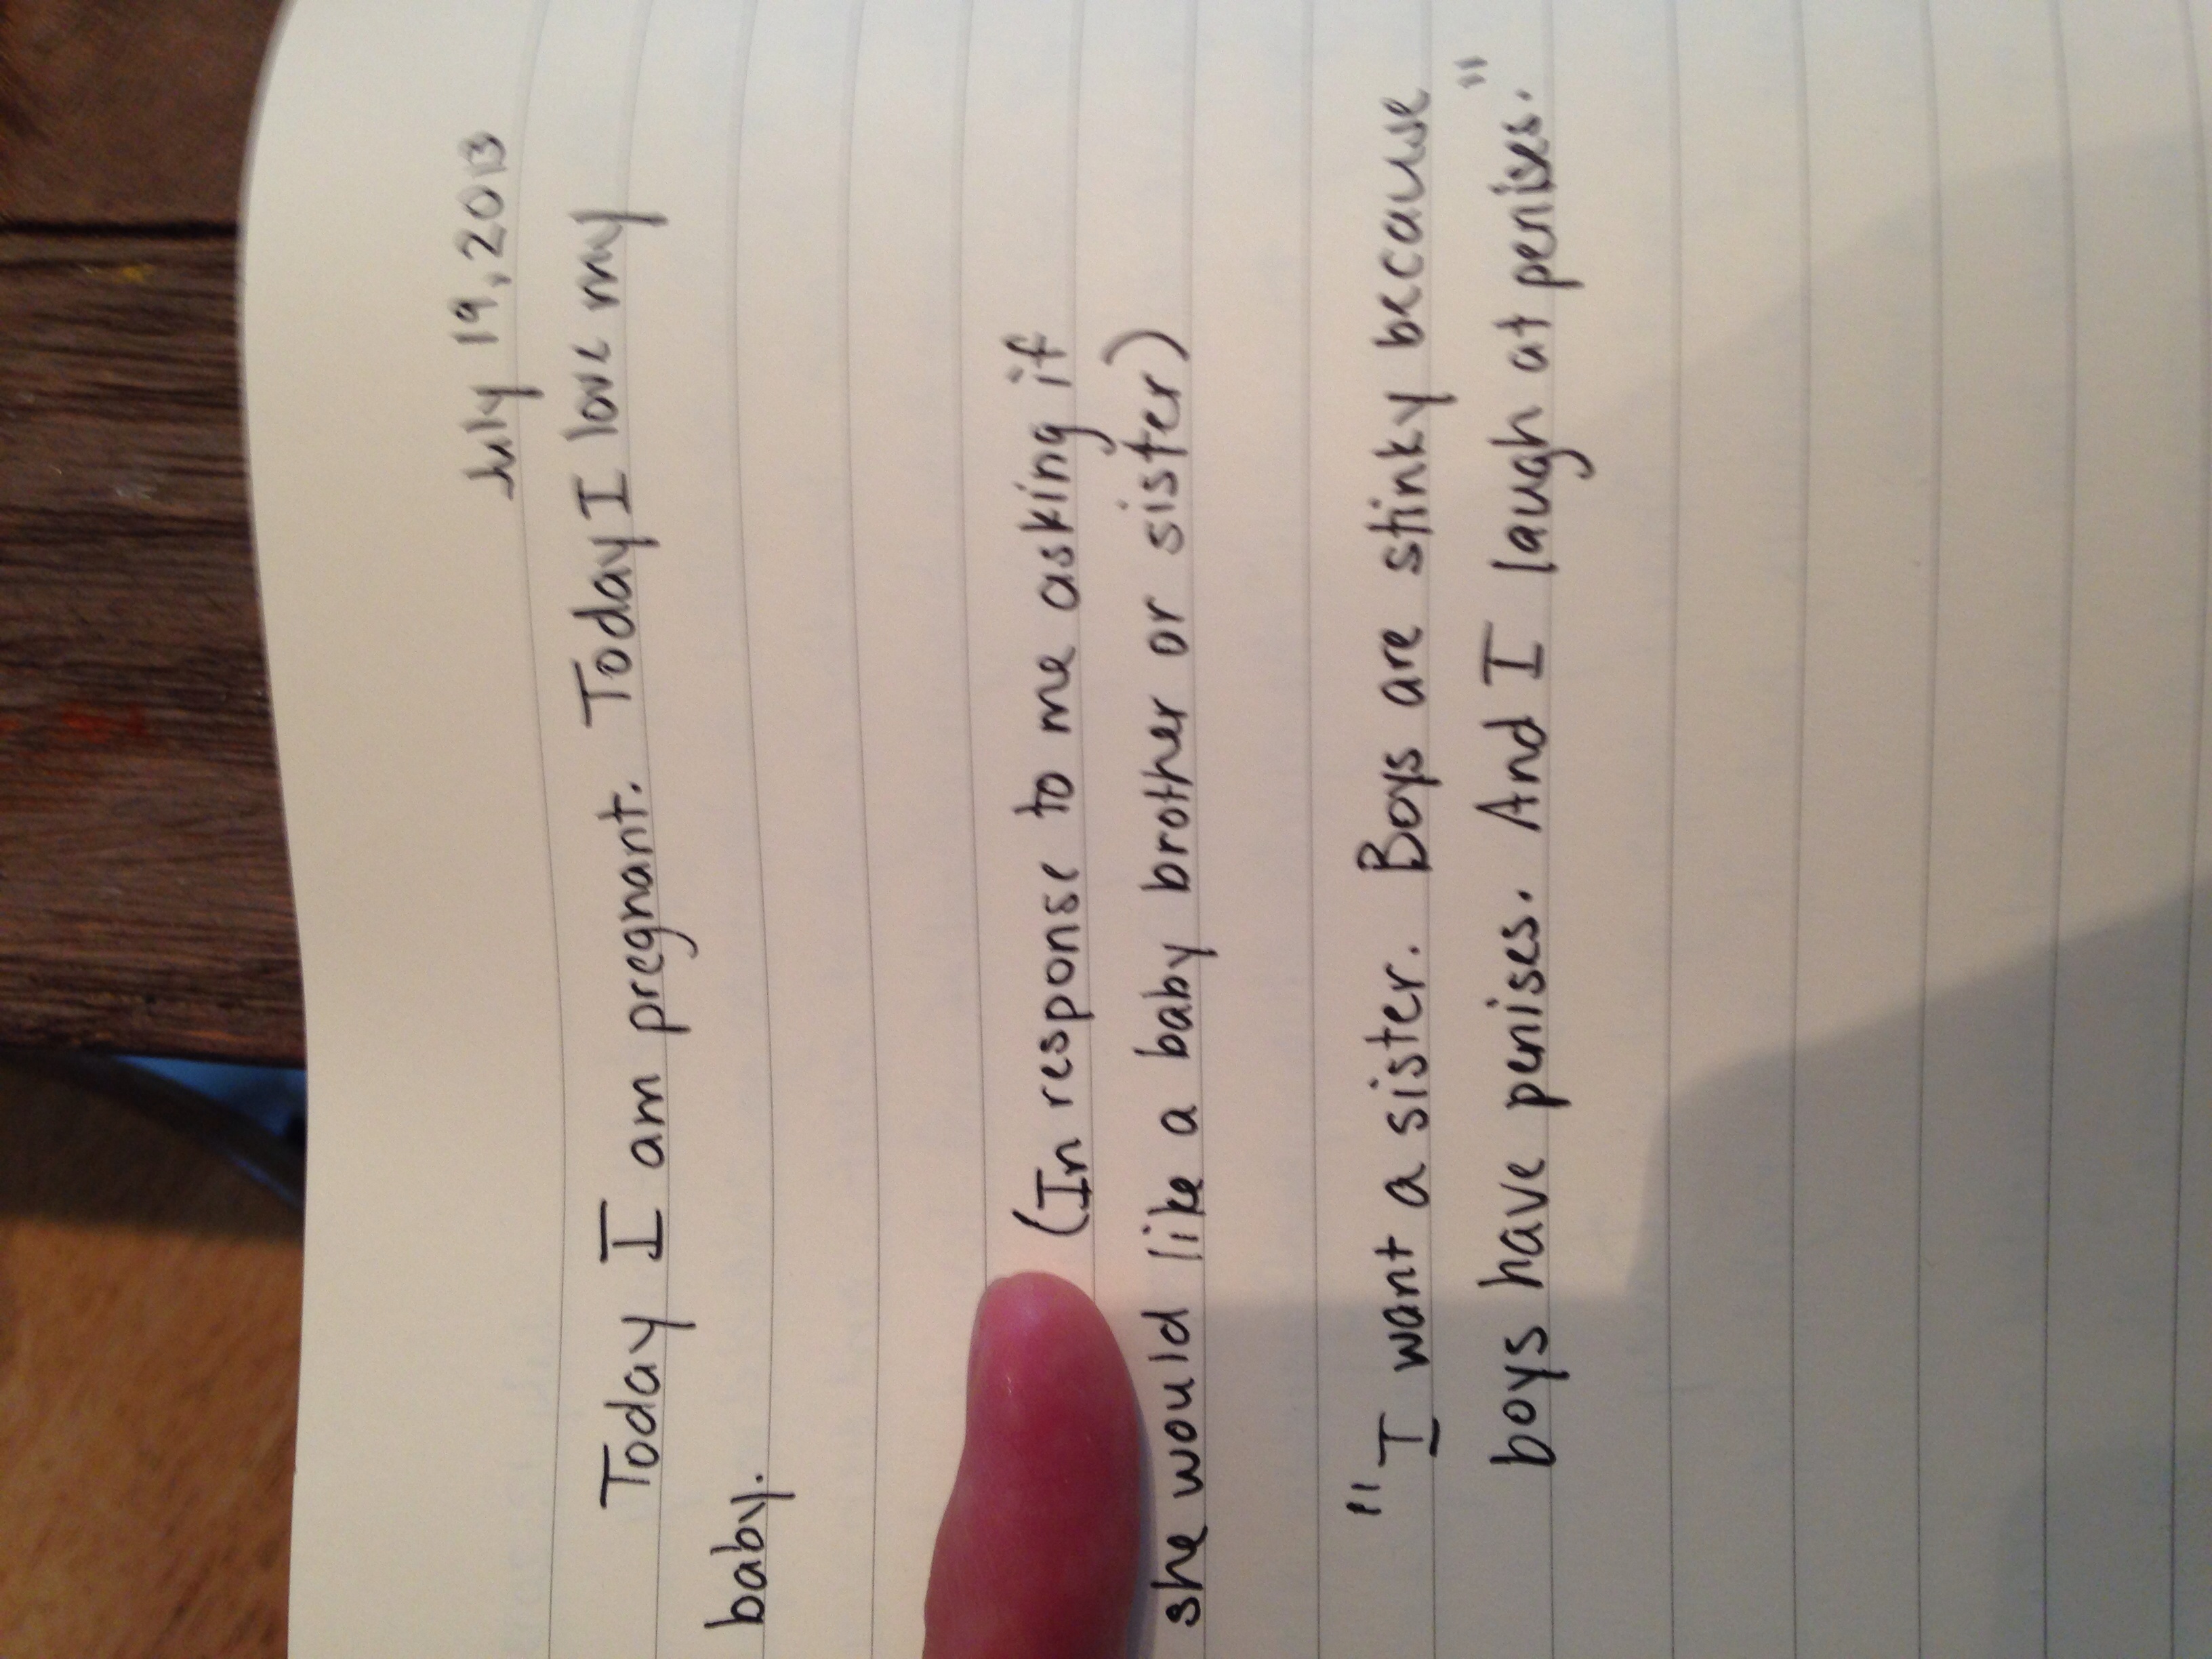 July 19, 2013
Today I am pregnant. Today I love my
baby.
(In response to me asking if
she would like a baby brother or sister)
"I want a sister. Boys are stinky because
boys have penises. And I laugh at penises."